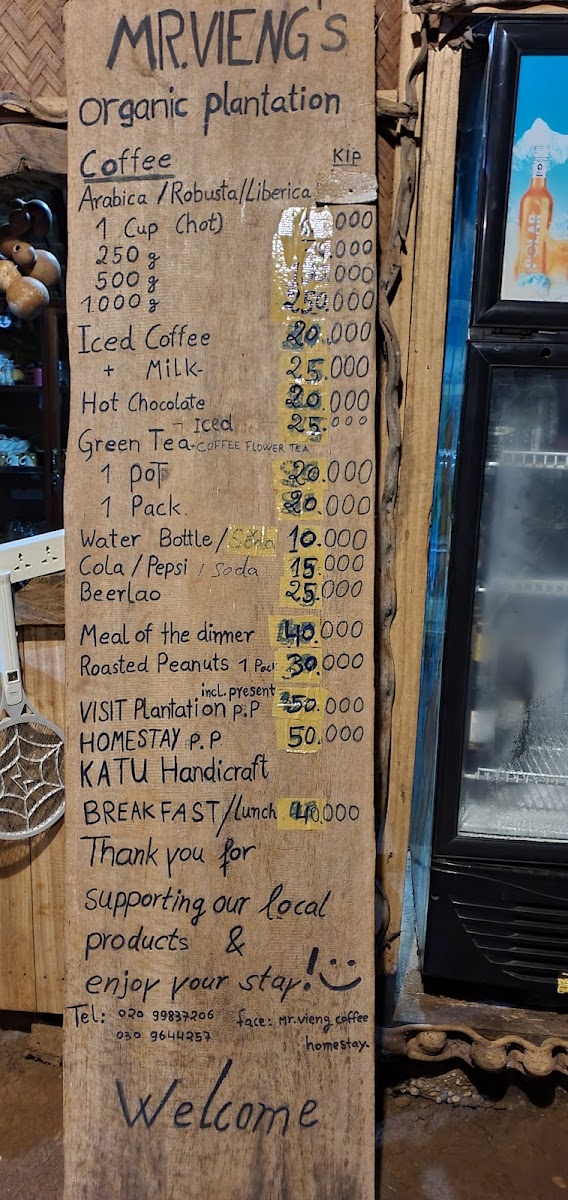 MR.VIENG's
Organic plantation
Coffee KIP
Arabica /Robusta/Liberica
1 Cup (hot) 000
250 g 000
500 g 000
1.000 g 250.000
Iced Coffee 20.000
+ Milk 25.000
Hot Chocolate 20.000
- Iced 25.000
Green Tea + COFFEE FLOWER TEA
1 pot 20.000
1 Pack. 20.000
Water Bottle / Soda 10.000
Cola / Pepsi / Soda 15.000
Beerlao 25.000
Meal of the dinner 40.000
Roasted Peanuts 1 Pack 30.000
incl. present
VISIT Plantation p.p 50.000
HOMESTAY p.p 50.000
KATU Handicraft
BREAKFAST/lunch 40.000
Thank you for
supporting our local
products &
enjoy your stay!
Tel: 020 99837206 face: Mr.vieng coffee
030 9644257 homestay.
Welcome
POLAR